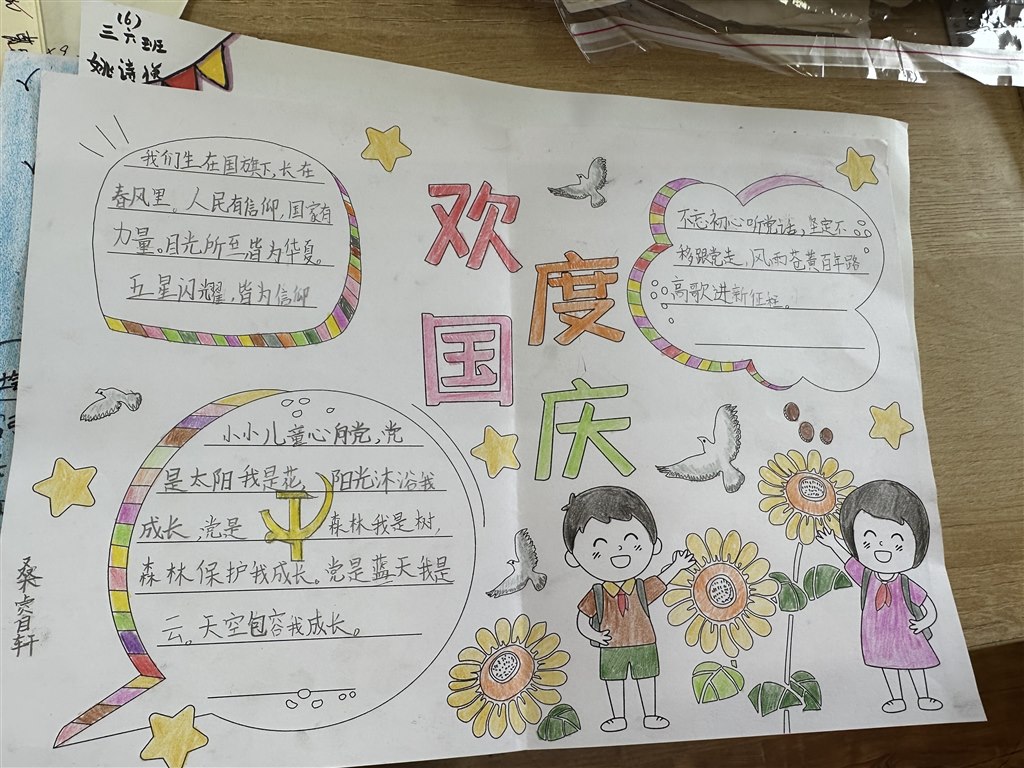 (6)
三六班
姚诗
我们生在国旗下,长在
春风里。人民有信仰,国家有
力量。目光所至皆为华夏。
五星闪耀,皆为信仰
欢度
国庆
不忘初心听党话,坚定不
移跟党走,风雨苍黄百年路
高歌进新征程。
小小儿童心向党,党
是太阳我是花,阳光沐浴我
成长,党是森林我是树,
森林保护我成长。党是蓝天我是
云。天空包容我成长。
桑睿轩